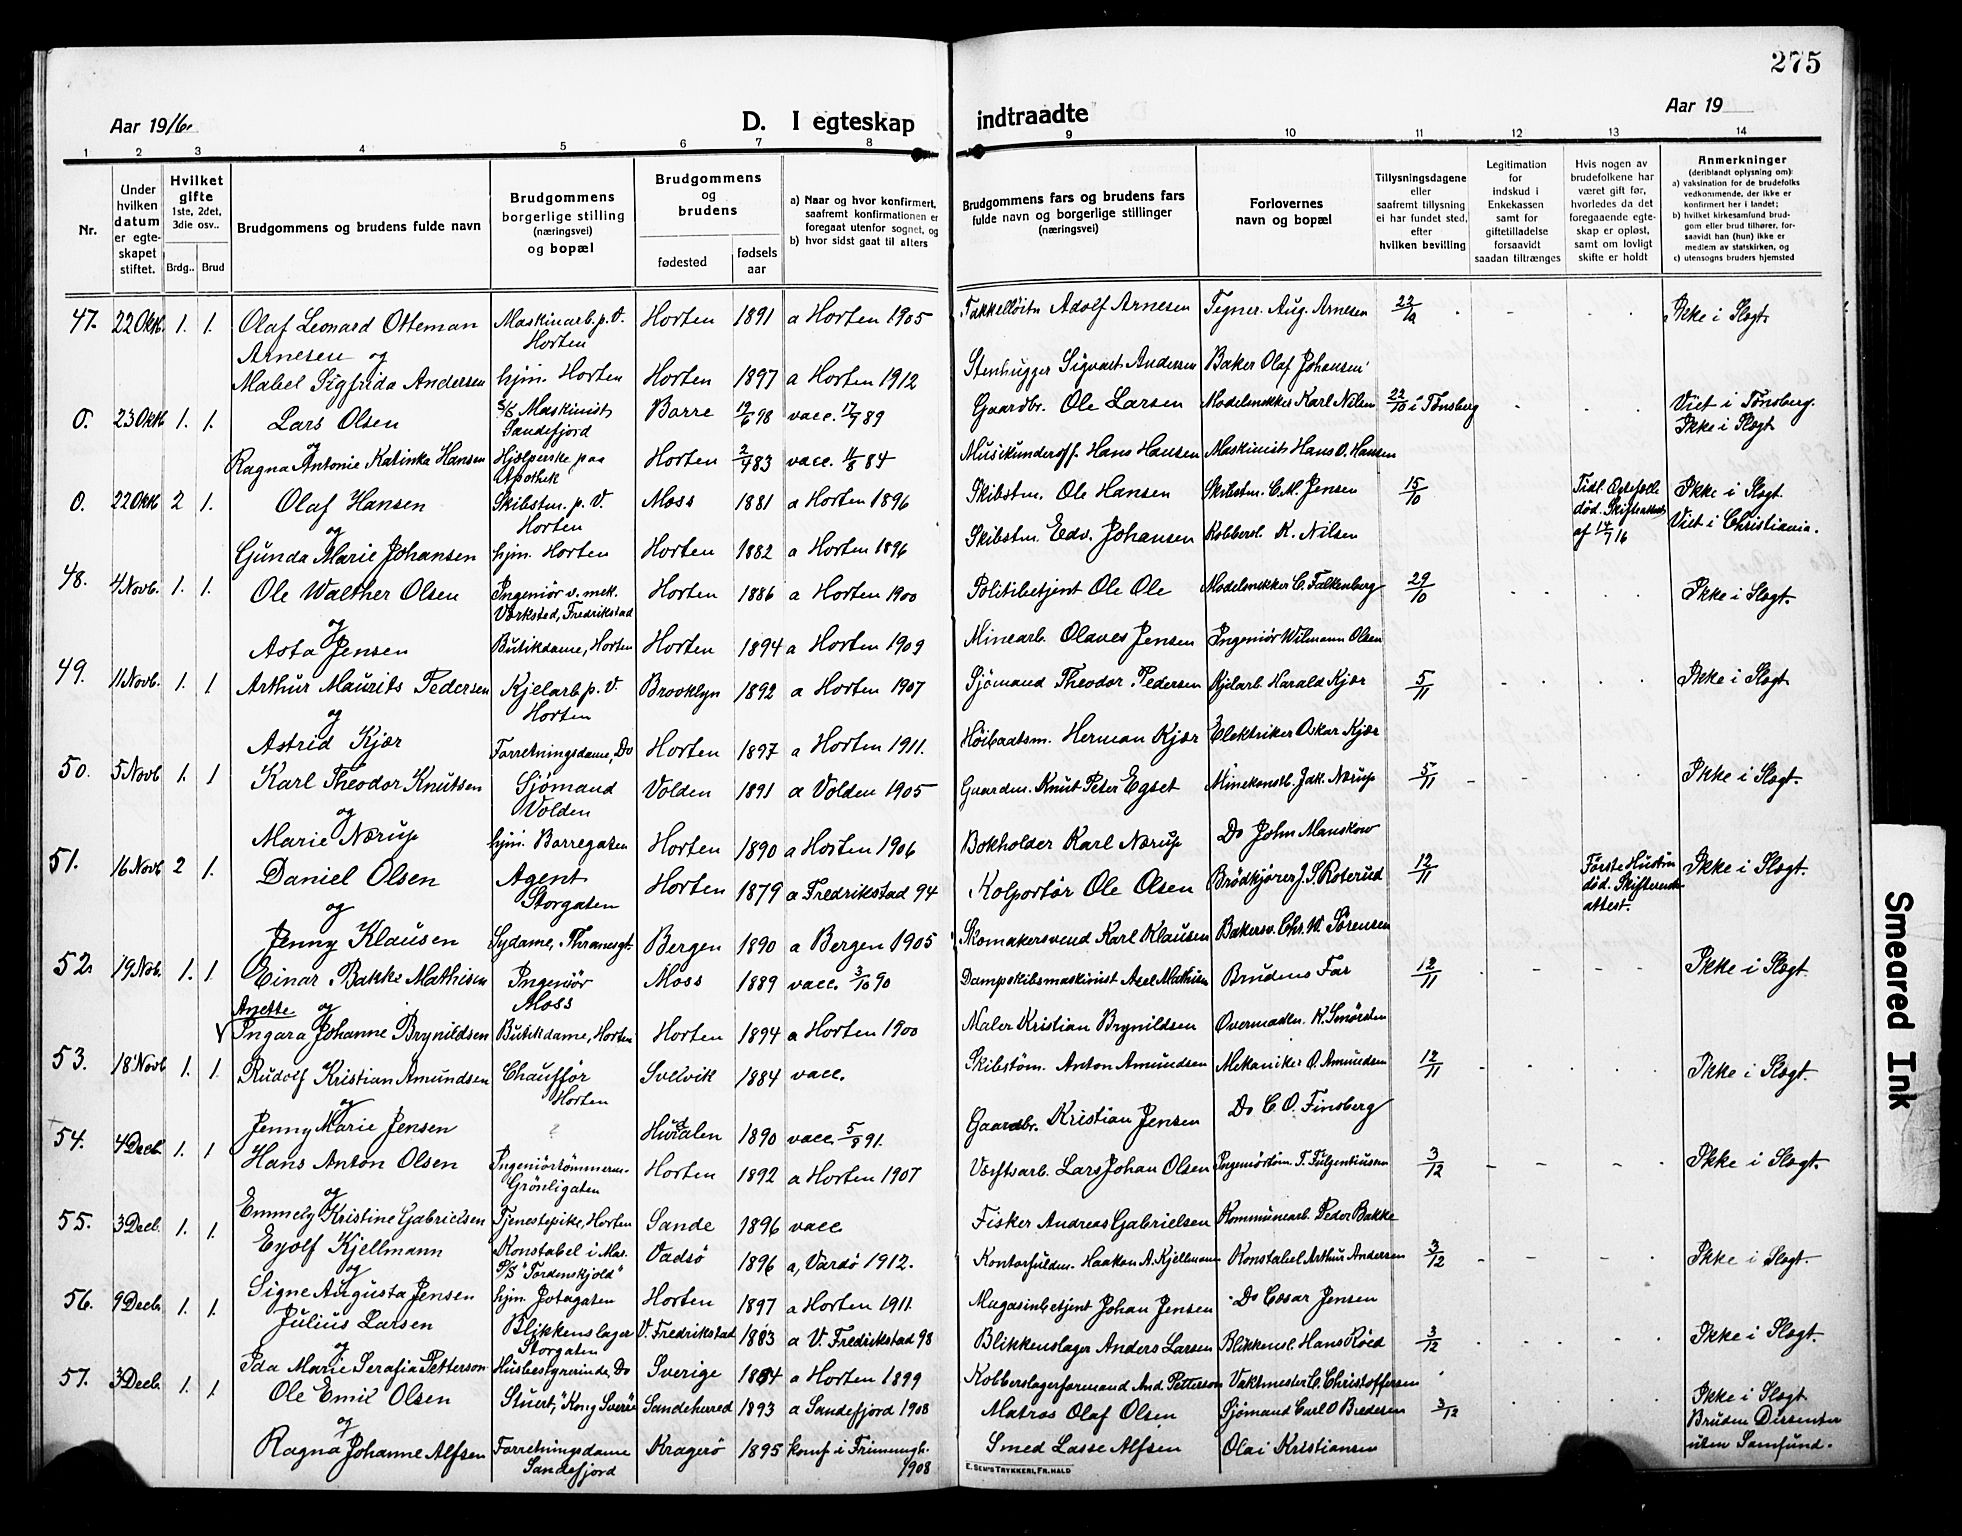 275
Aar 1916.
D. I egteskap
indtraadte
Aar 19
1 2 3 4 5 6 7 8 9 10 11 12 13 14
Nr.
Under hvilken datum er egteskapet stiftet.
Hvilket gifte 1ste, 2det, 3die osv..
Brdg.. Brud
Brudgommens og brudens fulde navn
Brudgommens borgerlige stilling (næringsvei) og bopæl
Brudgommens og brudens
fødested
fødsels aar
a) Naar og hvor konfirmert, saafremt konfirmationen er foregaat utenfor sognet, og
b) hvor sidst gaat til alters
Brudgommens fars og brudens fars fulde navn og borgerlige stillinger (næringsvei)
Forlovernes navn og bopæl
Tillysningsdagene eller saafremt tillysning ei har fundet sted, efter hvilken bevilling
Legitimation for indskud i Enkekassen samt for giftetilladelse forsaavidt saadan tiltrænges
Hvis nogen av brudefolkene har været gift før, hvorledes da det foregaaende egteskap er opløst, samt om lovligt skifte er holdt
Anmerkninger (deriblandt oplysning om):
a) vaksination for de brudefolks vedkommende, der ikke er konfirmert her i landet;
b) hvilket kirkesamfund brudgom eller brud tilhører, forsaavidt han (hun) ikke er medlem av statskirken, og
c) utensogns bruders hjemsted
47. 22 Okt. 1. 1. Olaf Leonard Otteman Maskinarb. p. V. Horten 1891 a Horten 1905 Takkelløitn Adolf Arnesen Tegner. Aug. Arnesen 22/10 Ikke i Slegt.
Arnesen og Horten
Mabel Sigfrida Andersen hjm. Horten Horten 1897 a Horten 1912 Stenhugger Sigvart Andersen Baker Olaf Johansen
O. 23 Okt 1. 1. Lars Olsen S/S Maskinist Borre 19/6 78 vacc. 17/9 89 Gaardbr. Ole Larsen Modelsnekker Karl Nilsen 22/10 i Tønsberg Viet i Tønsberg.
og Sandefjord Ikke i Slegt
Ragna Antonie Katinka Hansen Hjælperske paa Horten 2/4 83 vacc. 11/8 84 Musikunderoff. Hans Hansen Maskinist Hans O. Hansen
Apothek
O. 22 Okt 2 1. Olaf Hansen Skibstm. p. V. Moss 1881 a Horten 1896 Skibstm. Ole Hansen Skibstm. C. M. Jensen 15/10 Tidl. Egtefælle Ikke i Slegt.
og Horten død. Skifteattest Viet i Christiania.
Gunda Marie Johansen hjm. Horten Horten 1882 a Horten 1896 Skibstm. Edv. Johansen Kobbersl. K. Nilsen af 14/7 16
48. 4 Novb. 1. 1. Ole Walther Olsen Ingeniør v. mek. Horten 1886 a Horten 1900 Politibetjent Ole Ole Modelsnekker C. Falkenberg 29/10 Ikke i Slegt.
og Værksted, Fredrikstad
Asta Jensen Butikdame, Horten Horten 1894 a Horten 1909 Minearb. Olaves Jensen Ingeniør Wilmann Olsen
49. 11 Novb. 1. 1 Arthur Maurits Pedersen Kjelarb p. V. Brooklyn 1892 a Horten 1907 Sjømand Theodor Pedersen Kjelarb. Harald Kjær 5/11 Ikke i Slegt.
og Horten
Astrid Kjær Forretningsdame, Do Horten 1897 a Horten 1911. Høibaatsm. Herman Kjær Elektriker Oskar Kjær
50. 5 Novb 1. 1 Karl Theodor Knutsen Sjømand Volden 1891 a Volden 1905 Gaardm. Knut Peter Egset Minekonstb. Jak. Nærup 5/11 Ikke i Slegt.
og Volden
Marie Nærup hjm. Borregaten Horten 1890 a Horten 1906 Bokholder Karl Nærup Do John Manskow
51. 16 Novb 2 1. Daniel Olsen Agent Horten 1879 a Fredrikstad 94 Kolportør Ole Olsen Brødkjører J. S. Roterud 12/11 Første Hustru Ikke i Slegt.
og Storgaten død. Skifteretts attest.
Jenny Klausen Sydame, Thranesgt. Bergen 1890 a Bergen 1905 Skomakersvend Karl Klausen Bakersv. Chr. W. Sørensen
52. 19 Nov. 1. 1 Einar Bakke Mathisen Ingeniør Moss 1889 vacc. 3/10 90 Dampskibsmaskinist Axel Mathisen Brudens Far 12/11 Ikke i Slegt.
Anette og Moss
Ingara Johanne Brynildsen Butikdame, Horten Horten 1894 a Horten 1900 Maler Kristian Brynildsen Overmadln. K. Smørsten
53. 18 Novb 1. 1. Rudolf Kristian Amundsen Chauffør Svelvik 1884 vacc. Skibstøm. Anton Amundsen Mekaniker O. Amundsen 12/11 Ikke i Slegt.
og Horten
Jenny Marie Jensen ? Hurdalen 1890 vacc. 5/8 91. Gaardbr. Kristian Jensen Do C. O. Finsberg
54. 4 Decb. 1. 1 Hans Anton Olsen Ingeniørtømmerm. Horten 1892 a Horten 1907 Værftsarb. Lars Johan Olsen Ingeniørtøm. T. Fulgentiussen 3/12 Ikke i Slegt.
og Grønligaten
Emmely Kristine Gabrielsen Tjenestepike, Horten Sande 1896 vacc Fisker Andreas Gabrielsen Kommunearb. Peder Bakke
55. 3 Decb. 1. 1. Eyolf Kjellmann Konstabel i Mar. Vadsø 1896 a, Vardø 1912. Kontorfuldm. Haakon A. Kjellmann Konstabel Arthur Andersen 3/12 Ikke i Slegt.
og P/S "Tordenskjold"
Signe Augusta Jensen hjm. Jotagaten Horten 1897 a Horten 1911. Magasinbetjent Johan Jensen Do Cæsar Jensen
56. 9 Decb. 1. 1. Julius Larsen Blikkenslager V. Fredrikstad 1883 a V. Fredrikstad 98 Blikkenslager Anders Larsen Blikkensl. Hans Röed 3/12 Ikke i Slegt.
og Storgaten
Ida Marie Serafia Petterson Husbestyrerinde, Do Sverige 1884 a Horten 1899 Kobberslagerformand And. Petterson Vaktmester C. Christoffersen
57. 3 Decb. 1. 1. Ole Emil Olsen Stuert, "Kong Sverre" Sandeherred 1893 a Sandefjord 1908 Matros Olaf Olsen Sjømand Carl O Bredesen 3/12 Ikke i Slegt
og Bruden Dissenter
Ragna Johanne Alfsen Forretningsdame Kragerø 1895 konf i Frimenigh. Smed Lasse Alfsen Olai Kristiansen uten Samfund.
Sandefjord 1908
E. SEM'S TRYKKERI, FR.HALD
Smeared Ink